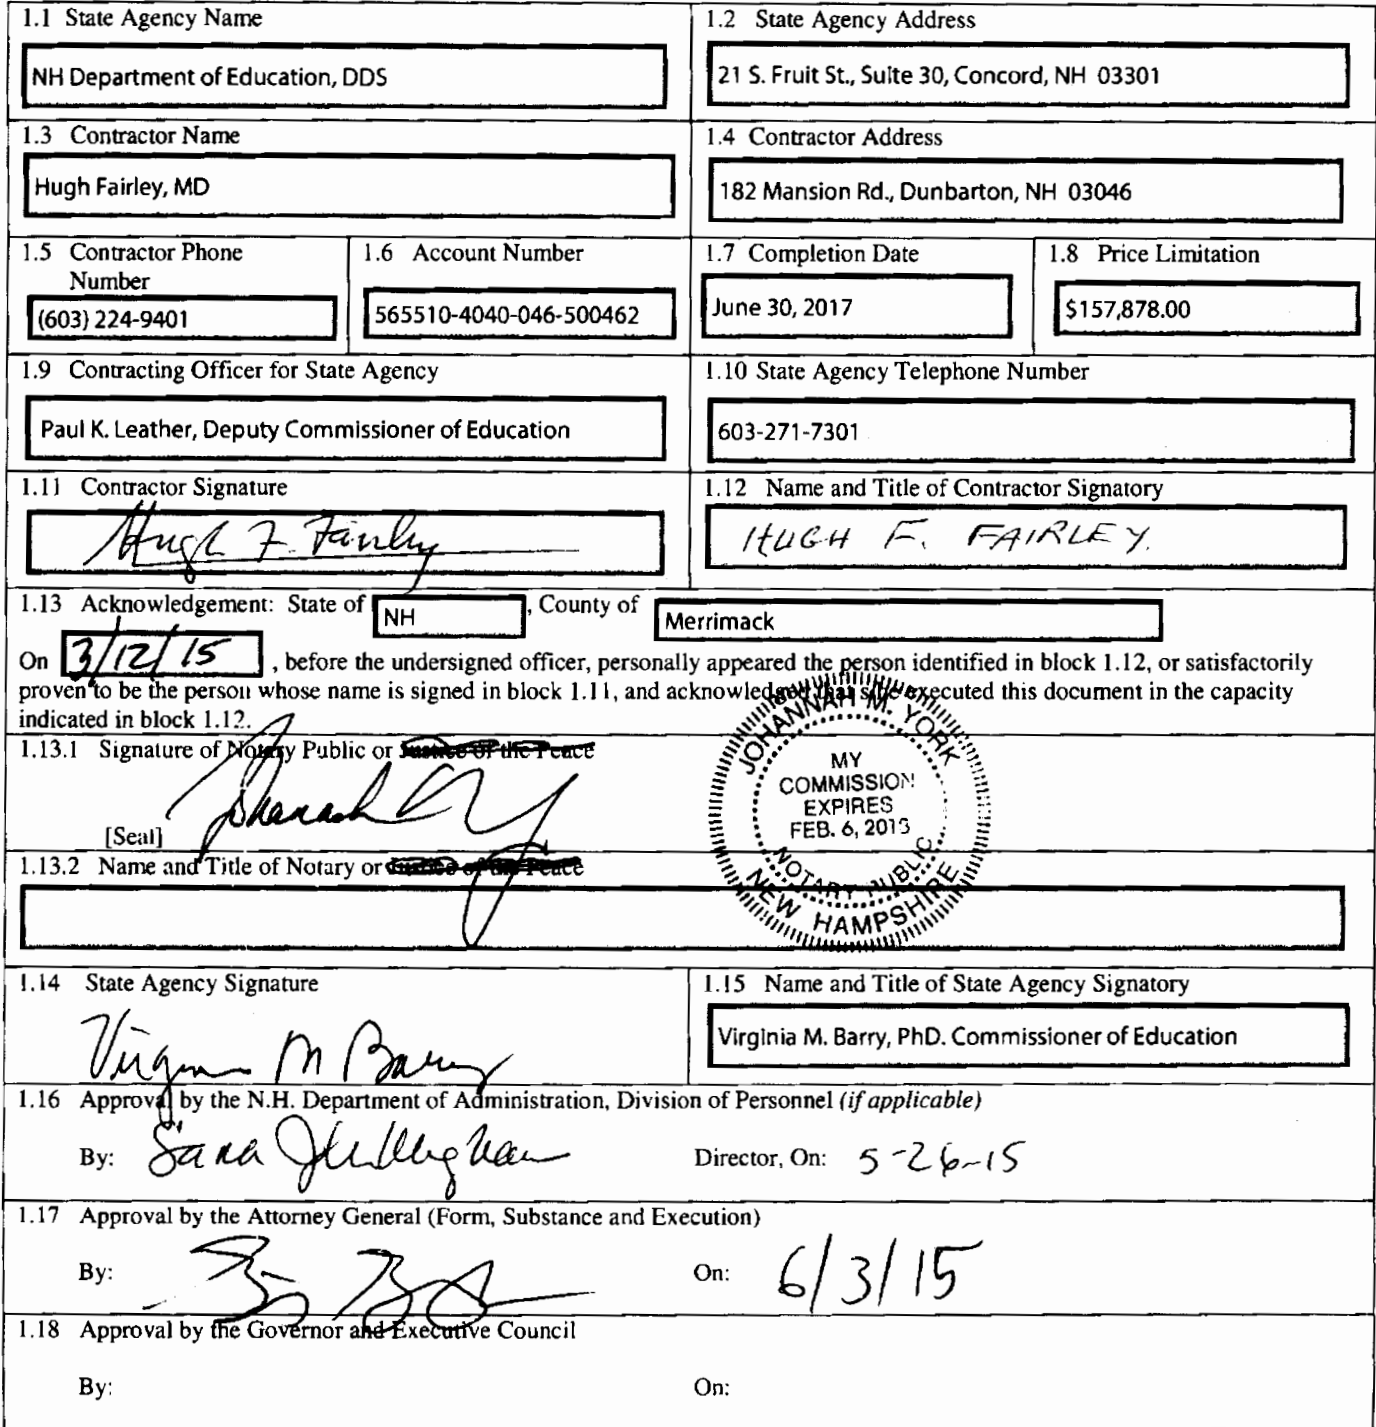 1.1 State Agency Name
NH Department of Education, DDS
1.2 State Agency Address
21 S. Fruit St., Suite 30, Concord, NH 03301
1.3 Contractor Name
Hugh Fairley, MD
1.4 Contractor Address
182 Mansion Rd., Dunbarton, NH 03046
1.5 Contractor Phone
Number
(603) 224-9401
1.6 Account Number
565510-4040-046-500462
1.7 Completion Date
June 30, 2017
1.8 Price Limitation
$157,878.00
1.9 Contracting Officer for State Agency
Paul K. Leather, Deputy Commissioner of Education
1.10 State Agency Telephone Number
603-271-7301
1.11 Contractor Signature
Hugh F. Fairley
1.12 Name and Title of Contractor Signatory
HUGH F. FAIRLEY.
1.13 Acknowledgement: State of NH, County of Merrimack
On 3/12/15, before the undersigned officer, personally appeared the person identified in block 1.12, or satisfactorily
proven to be the person whose name is signed in block 1.11, and acknowledged that s/he executed this document in the capacity
indicated in block 1.12.
1.13.1 Signature of Notary Public or Justice of the Peace
[Seal]
JOHANNAH M. YORK
MY
COMMISSION
EXPIRES
FEB. 6, 201
NOTARY PUBLIC
NEW HAMPSHIRE
1.13.2 Name and Title of Notary or Justice of the Peace
1.14 State Agency Signature
Virginia M Barry
1.15 Name and Title of State Agency Signatory
Virginia M. Barry, PhD. Commissioner of Education
1.16 Approval by the N.H. Department of Administration, Division of Personnel (if applicable)
By: Sara Director, On: 5-26-15
1.17 Approval by the Attorney General (Form, Substance and Execution)
By: On: 6/3/15
1.18 Approval by the Governor and Executive Council
By: On: